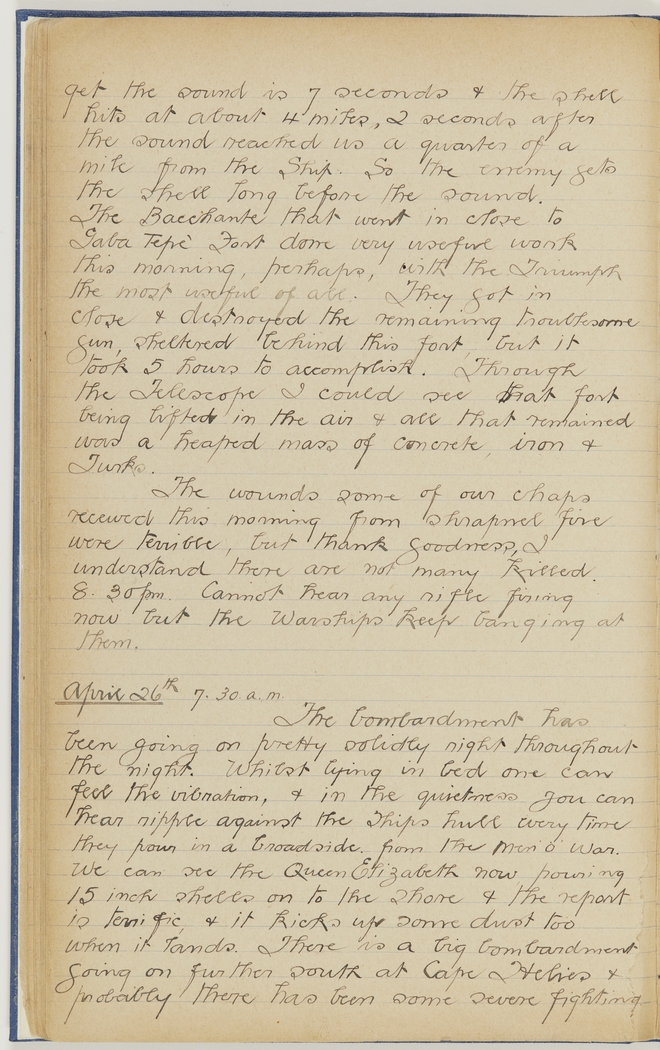 get the sound is 7 seconds & the shell
hits at about 4 miles, 2 seconds after
the sound reached us a quarter of a
mile from the Ship. So the enemy gets
the shell long before the sound.
The Bacchante that went in close to
Gaba Tepè Fort done very useful work
this morning, perhaps, with the Triumph
the most useful of all. They got in
close & destroyed the remaining troublesome
gun, sheltered behind this fort, but it
took 5 hours to accomplish. Through
the Telescope I could see that fort
being lifted in the air & all that remained
was a heaped mass of concrete, iron &
Turks.
The wounds some of our chaps
received this morning from shrapnel fire
were terrible, but thank goodness, I
understand there are not many killed.
8.30pm. Cannot hear any rifle firing
now but the Warships keep banging at
them.
April 26th 7.30 a.m.
The bombardment has
been going on pretty solidly right throughout
the night. Whilst lying in bed one can
feel the vibration, & in the quietness you can
hear ripple against the ships hull every time
they pour in a broadside from the Men o' War.
We can see the Queen Elizabeth now pouring
15 inch shells on to the shore & the report
is terrific, & it kicks up some dust too
when it lands. There is a big bombardment
going on further south at Cape Helies &
probably there has been some severe fighting